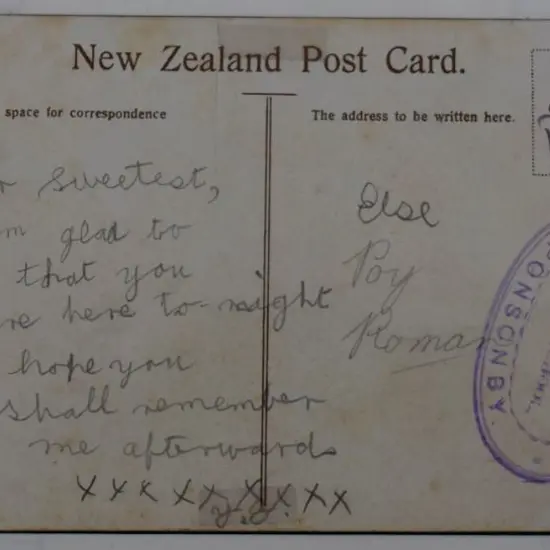 New Zealand Post Card.
space for correspondence
The address to be written here.
r sweetest,
m glad to
that you
re here to-night
hope you
shall remember
me afterwards
x x x x x x x x x
Else
Poy
Roman
PONSONBY